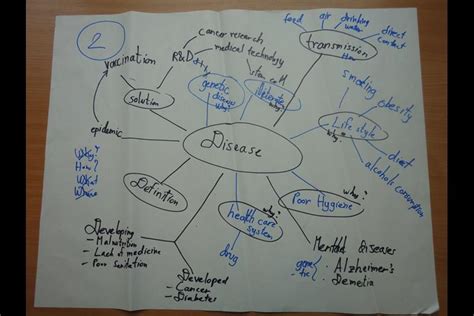 2
cancer research
R&D
medical technology
stem cell
feed
air
drinking
water
direct
contact
transmission
How
vaccination
solution
genetic
disease
why?
illiterate
why?
smoking
obesity
epidemic
Disease
Life style
why?
diet
alcohol consumption
Why?
How?
What
Where
Definition
why?
health care
system
drug
why?
Poor Hygiene
Developing
- Malnutrition
- Lack of medicine
- Poor Sanitation
Developed
- Cancer
- Diabetes
Mental diseases
Alzheimer's
Demetia